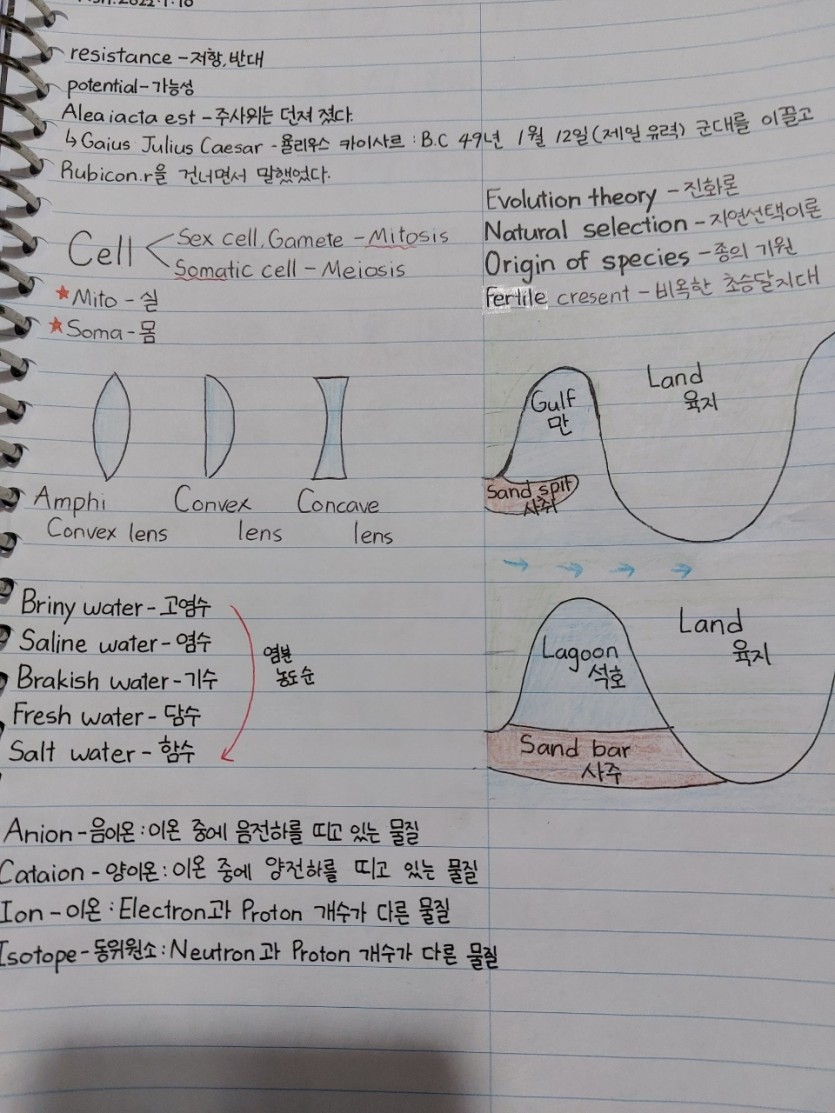 resistance - 저항, 반대
potential - 가능성
Alea iacta est - 주사위는 던져 졌다.
↳ Gaius Julius Caesar - 율리우스 카이사르 : B.C 49년 1월 12일(제일 유력) 군대를 이끌고
Rubicon.r을 건너면서 말했었다.
Cell
Sex cell, Gamete - Mitosis
Somatic cell - Meiosis
★Mito - 실
★Soma - 몸
Evolution theory - 진화론
Natural selection - 자연선택이론
Origin of species - 종의 기원
Fertile cresent - 비옥한 초승달지대
Amphi
Convex lens
Convex
lens
Concave
lens
Gulf
만
Land
육지
Sand spit
사취
→ → → →
Lagoon
석호
Land
육지
Sand bar
사주
Briny water - 고염수
Saline water - 염수
Brakish water - 기수
Fresh water - 담수
Salt water - 함수
염분
농도 순
Anion - 음이온 : 이온 중에 음전하를 띠고 있는 물질
Cataion - 양이온 : 이온 중에 양전하를 띠고 있는 물질
Ion - 이온 : Electron과 Proton 개수가 다른 물질
Isotope - 동위원소 : Neutron과 Proton 개수가 다른 물질